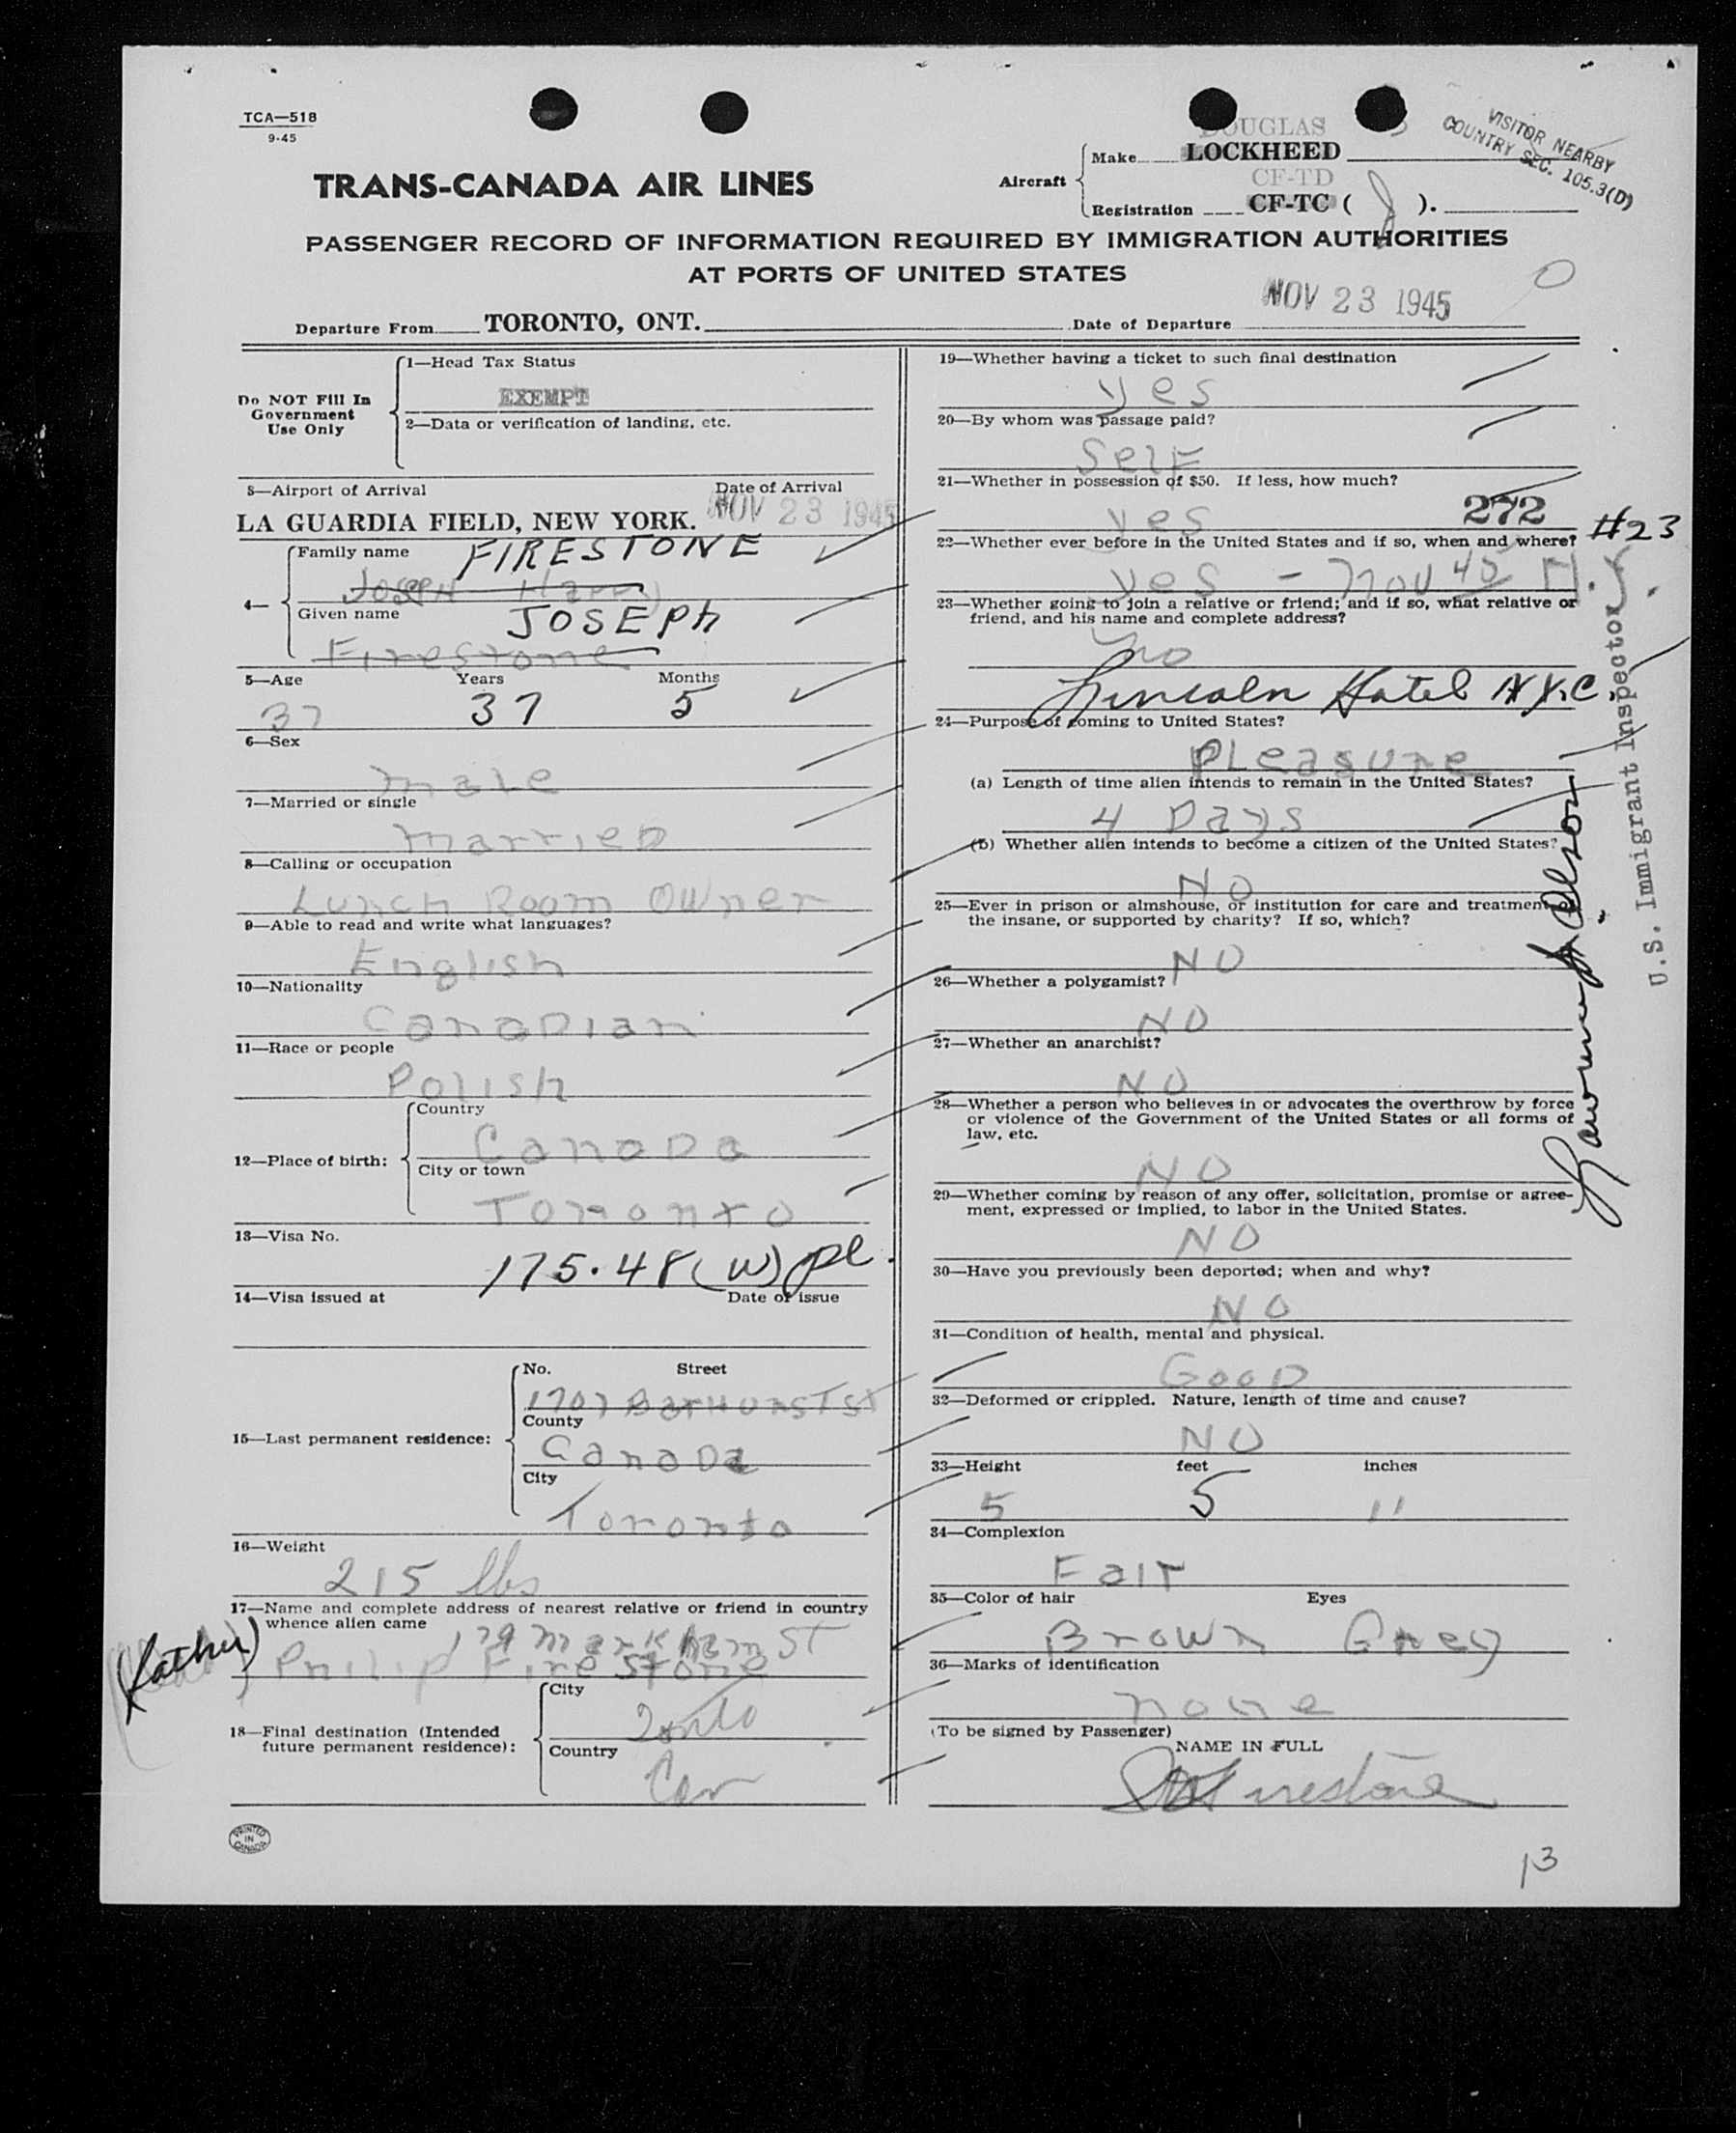 TCA—518
9-45
TRANS-CANADA AIR LINES
Aircraft
DOUGLAS
Make LOCKHEED
CF-TD
Registration CF-TC ( J ).
VISITOR NEARBY
COUNTRY SEC. 105.3(D)
PASSENGER RECORD OF INFORMATION REQUIRED BY IMMIGRATION AUTHORITIES
AT PORTS OF UNITED STATES
Departure From TORONTO, ONT.
Date of Departure NOV 23 1945
Do NOT Fill In
Government
Use Only
1—Head Tax Status
EXEMPT
2—Data or verification of landing, etc.
3—Airport of Arrival
Date of Arrival
LA GUARDIA FIELD, NEW YORK.
NOV 23 1945
4—
Family name FIRESTONE
Joseph Harry
Given name JOSEPh
Firestone
5—Age Years Months
37 37 5
6—Sex
male
7—Married or single
Married
8—Calling or occupation
Lunch Room Owner
9—Able to read and write what languages?
English
10—Nationality
Canadian
11—Race or people
Polish
12—Place of birth:
Country
Canada
City or town
Toronto
13—Visa No.
175.48 (W) pl.
14—Visa issued at Date of issue
15—Last permanent residence:
No. Street
1707 Bathurst St
County
Canada
City
Toronto
16—Weight
215 lbs
17—Name and complete address of nearest relative or friend in country
whence alien came
179 Markham ST
(father) Philip Firestone
18—Final destination (Intended
future permanent residence):
City
Toronto
Country
Can
PRINTED
IN
CANADA
19—Whether having a ticket to such final destination
yes
20—By whom was passage paid?
Self
21—Whether in possession of $50. If less, how much?
yes 272
22—Whether ever before in the United States and if so, when and where? #23
yes – Nov 45 N.Y.
23—Whether going to join a relative or friend; and if so, what relative or
friend, and his name and complete address?
no
Lincoln Hotel N.Y.C.
24—Purpose of coming to United States?
Pleasure
(a) Length of time alien intends to remain in the United States?
4 Days
(b) Whether alien intends to become a citizen of the United States?
NO
25—Ever in prison or almshouse, or institution for care and treatment of
the insane, or supported by charity? If so, which?
NO
26—Whether a polygamist?
NO
27—Whether an anarchist?
NO
28—Whether a person who believes in or advocates the overthrow by force
or violence of the Government of the United States or all forms of
law, etc.
NO
29—Whether coming by reason of any offer, solicitation, promise or agree-
ment, expressed or implied, to labor in the United States.
NO
30—Have you previously been deported; when and why?
NO
31—Condition of health, mental and physical.
Good
32—Deformed or crippled. Nature, length of time and cause?
NO
33—Height feet inches
5 5 11
34—Complexion
Fair
35—Color of hair Eyes
Brown Grey
36—Marks of identification
none
(To be signed by Passenger)
NAME IN FULL
Firestone
U.S. Immigrant Inspector
13